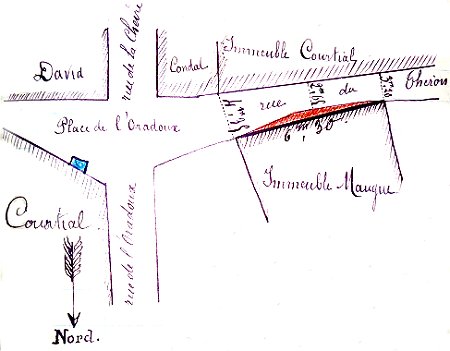 David
rue de la Chèvre
Condat
Immeuble Courtial
rue du Theron
Place de l'Oradoux
6m,30
Immeuble Maugue
Courtial
rue de l'Oradoux
Nord.